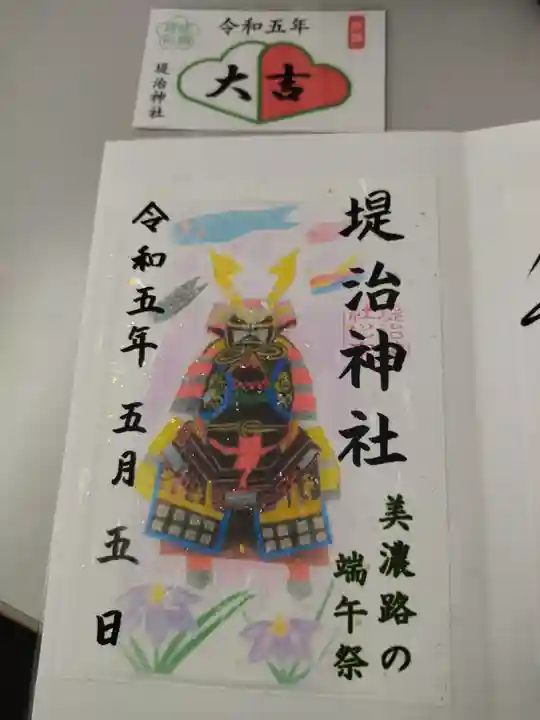 令和五年
大吉
堤治神社
堤治神社
美濃路の
端午祭
令和五年 五月 五日